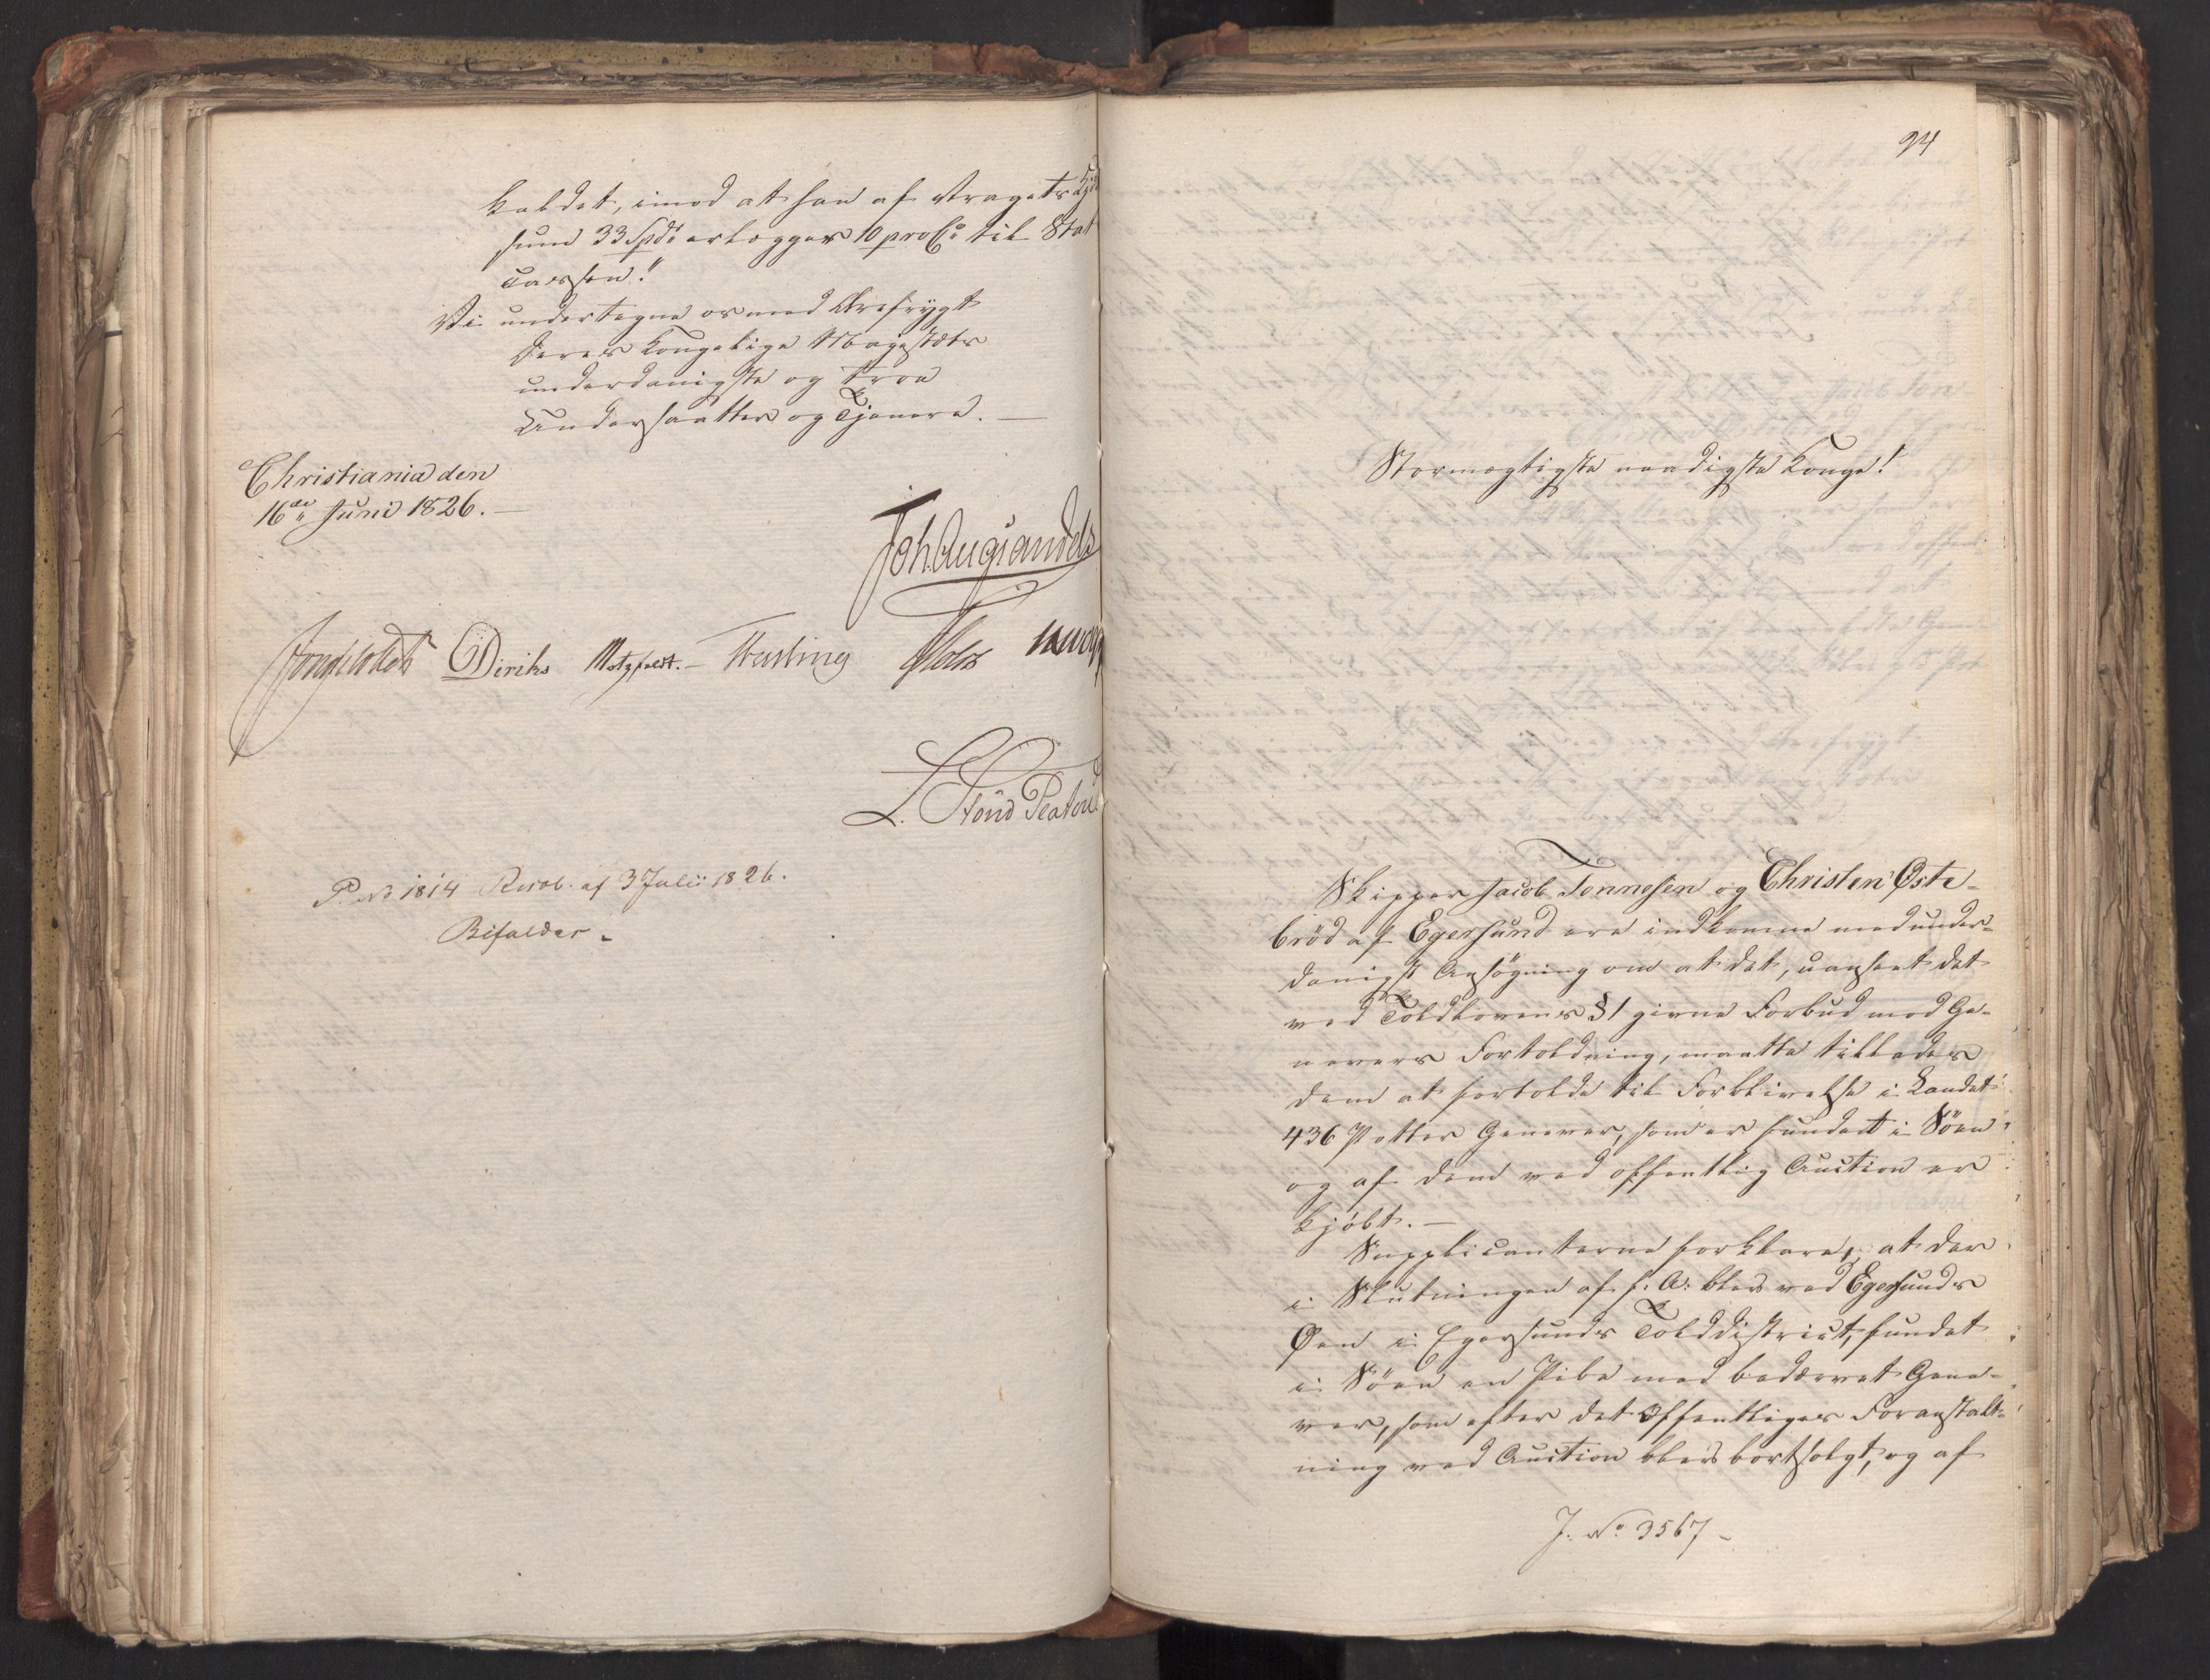 kaldet, imod at han af Vragets Kjøb
sum 33 Spd. erlægger 10 proCt. til Stats
Cassen."
Vi undertegne os med Ærefrygt
Deres Kongelige Majestæts
underdanigste og troe
Undersaatter og Tjenere. —
Christiania den
16de Juni 1826. —
Joh. Aug. Sandels
Diriks Motzfeldt. — Holst
L. Stoud Platou
P. No 1814 Resol. af 3 Julii 1826.
Bifaldes.
94
Stormægtigste naadigste Konge!
Skipper Jacob Tonnesen og Christen Øste-
bröd af Egersund ere indkomne med under-
danigst Ansögning om at det, uanseet det
ved Toldlovens § 1 givne Forbud mod Ge-
nevers Fortoldning, maatte tillades
dem at fortolde til Forblivelse i Landet
436 Potter Genever, som er fundet i Söen
og af dem ved offentlig Auction er
kjöbt. —
Supplicanterne forklare, at der
i Slutningen af f. A. blev ved Egersunds
Øen i Egersunds Tolddistrict, fundet
i Söen en Pibe med bedærvet Gene-
ver, som efter det Offentliges Foranstalt-
ning ved Auction blev bortsolgt, og af
J. No 3567 —